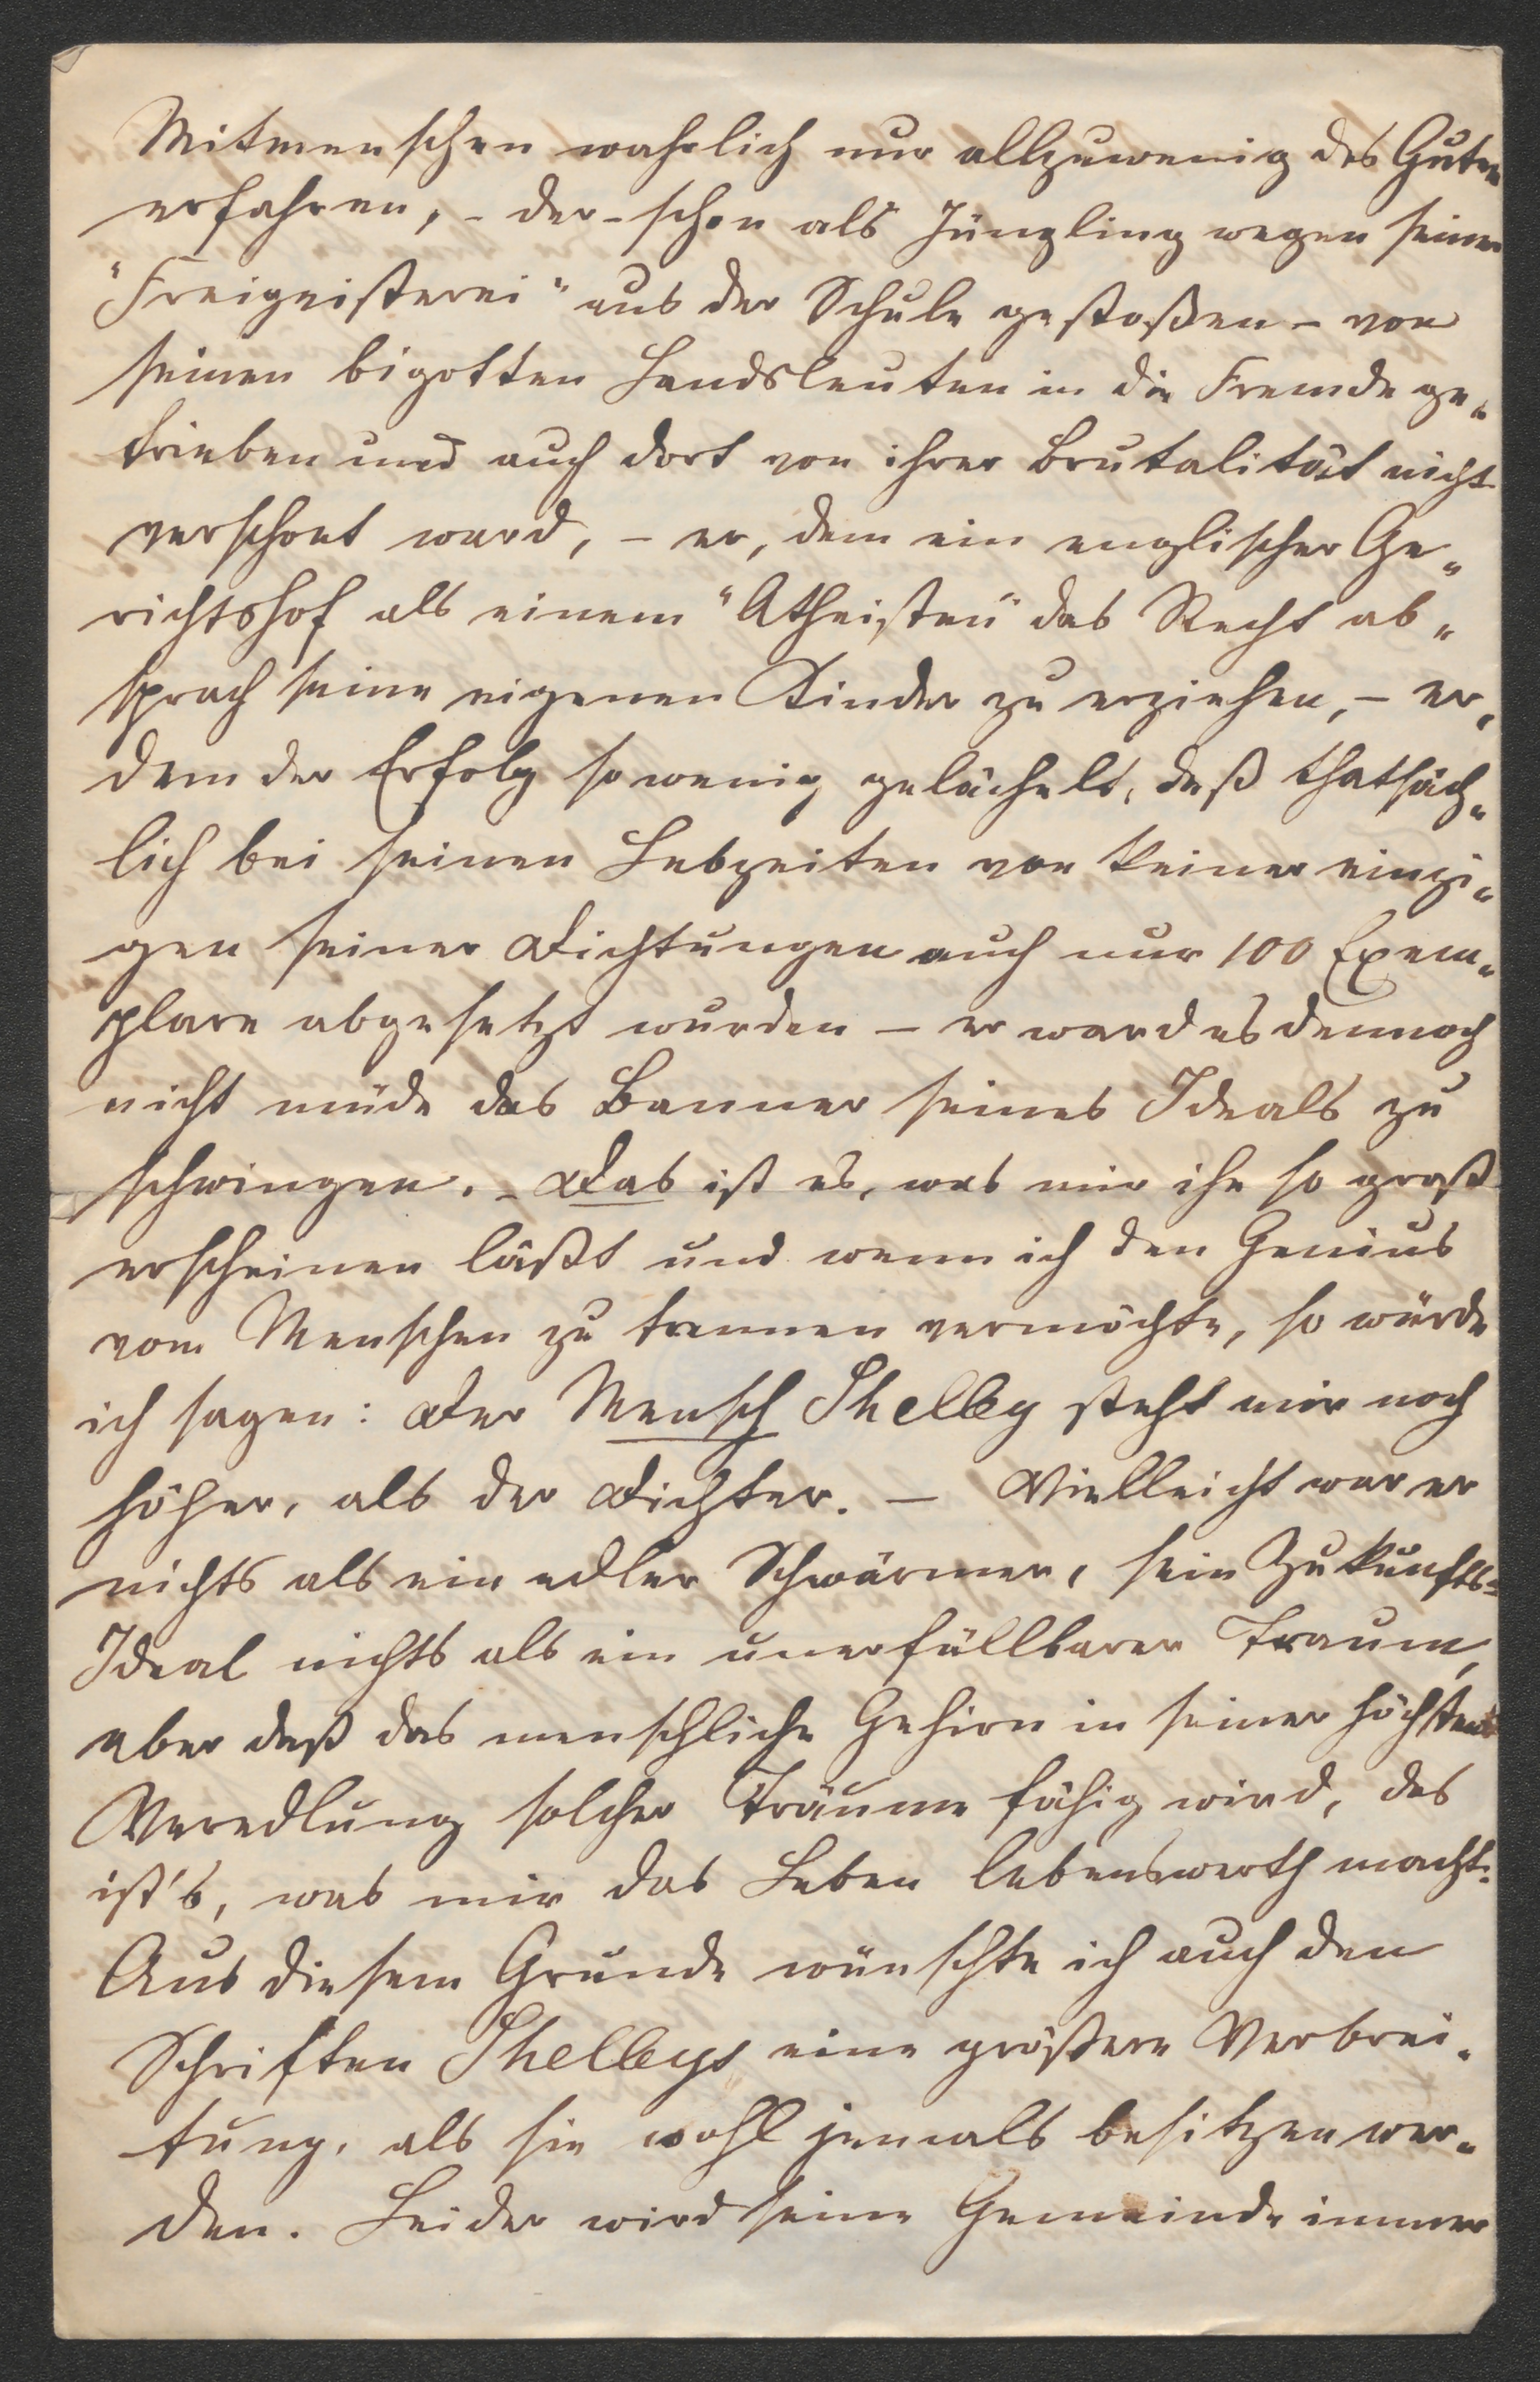 Mitmenschen wahrlich nur allzuwenig des Guten
erfahren, - der - schon als Jüngling wegen seiner
"Freigeisterei" aus der Schule gestoßen - von
seinen bigotten Landsleuten in die Fremde ge„
trieben und auch dort von ihrer Brutalität nicht
verschont ward, - er, dem ein englischer Ge„
richtshof als einem "Atheisten" das Recht ab„
sprach seine eigenen Kinder zu erziehen, - er,
dem der Erfolg so wenig gelächelt, daß thatsäch„
lich bei seinen Lebzeiten von keiner einzi„
gen seiner Dichtungen auch nur 100 Exem„
plare abgesetzt wurden - er ward es dennoch
nicht müde das Banner seines Ideals zu
schwingen. - Das ist es, was mir ihn so groß
erscheinen läßt und wenn ich den Genius
vom Menschen zu trennen vermöchte, so würde
ich sagen: Der Mensch Shelley steht mir noch
höher, als der Dichter. - Vielleicht war er
nichts als ein edler Schwärmer, sein Zukunfts=
Ideal nichts als ein unerfüllbarer Traum,
aber daß das menschliche Gehirn in seiner höchsten
Veredlung solcher Träume fähig wird, das
ist's, was mir das Leben lebenswerth macht.
Aus diesem Grunde wünschte ich auch den
Schriften Shelleys eine größere Verbrei„
tung, als sie wohl jemals besitzen wer„
den. Leider wird seine Gemeinde immer